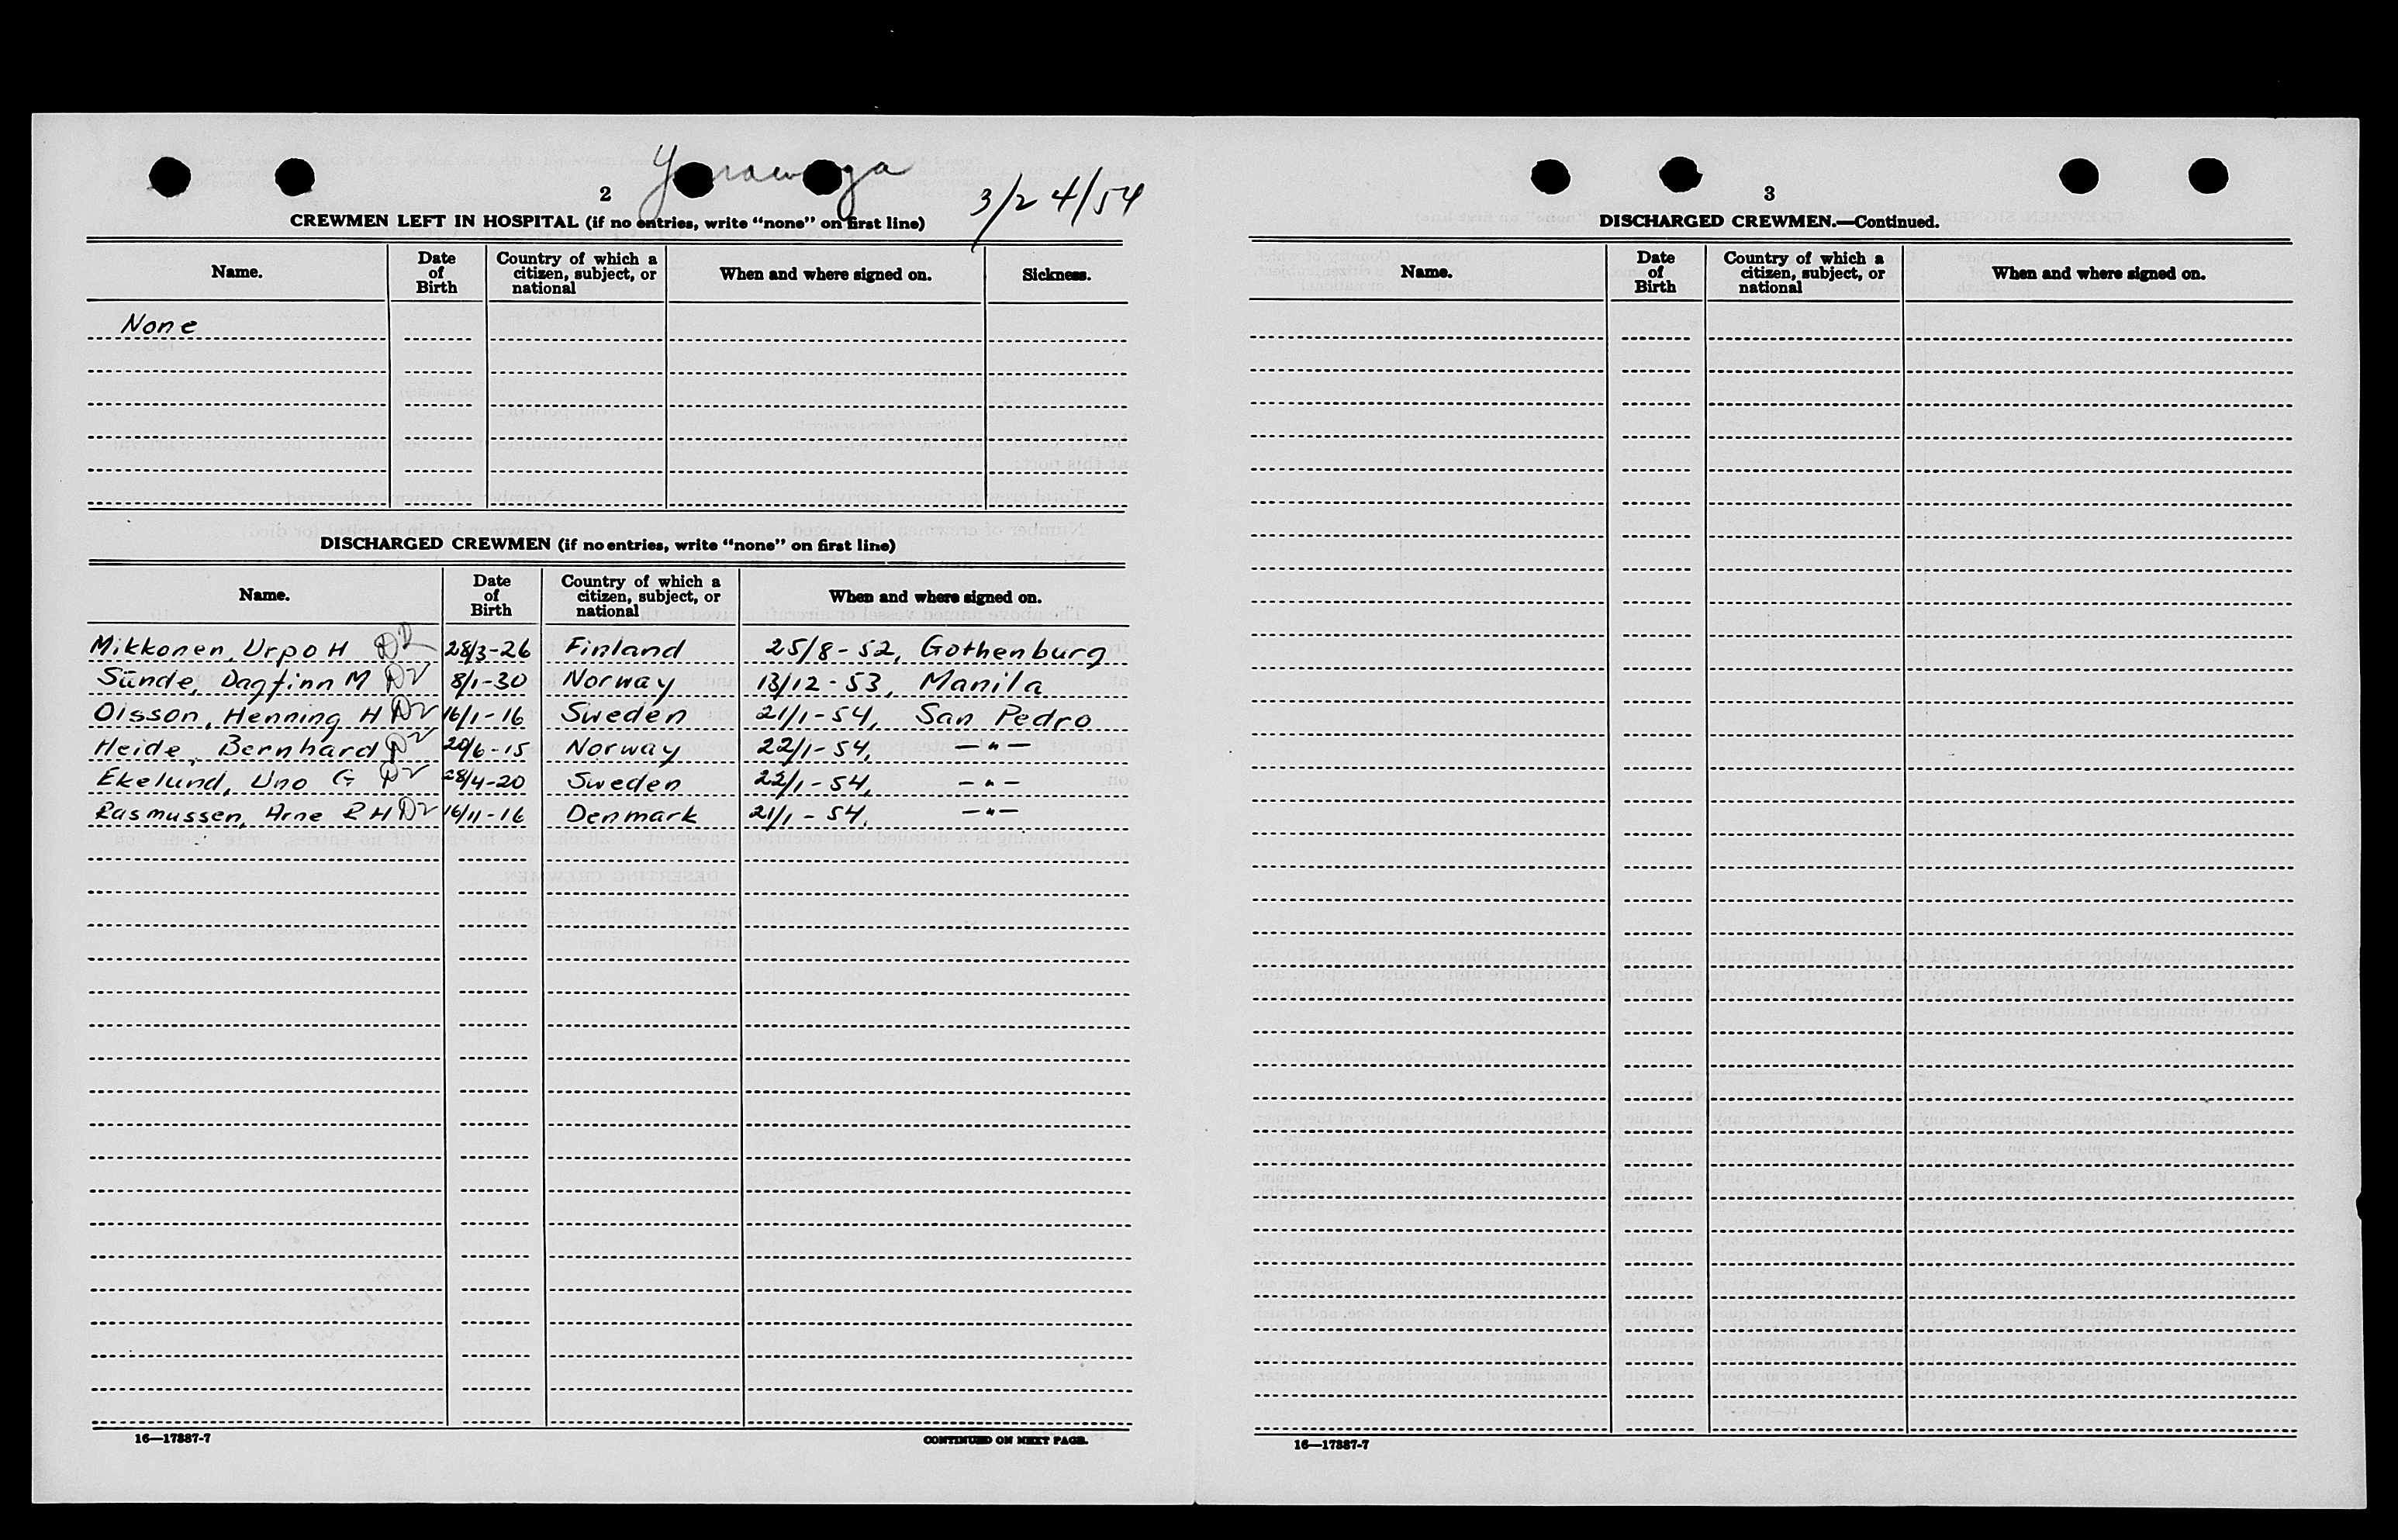 2
3/24/54
CREWMEN LEFT IN HOSPITAL (if no entries, write “none” on first line)
Name. Date of Birth Country of which a citizen, subject, or national When and where signed on. Sickness.
None
DISCHARGED CREWMEN (if no entries, write “none” on first line)
Name. Date of Birth Country of which a citizen, subject, or national When and where signed on.
Mikkonen, Urpo H 28/3-26 Finland 25/8-52, Gothenburg
Sünde, Dagfinn M 8/1-30 Norway 13/12-53, Manila
Olsson, Henning H 16/1-16 Sweden 21/1-54, San Pedro
Heide, Bernhard 20/6-15 Norway 22/1-54, — " —
Ekelund, Uno G 28/4-20 Sweden 22/1-54, — " —
Rasmussen, Arne R H 16/11-16 Denmark 21/1-54, — " —
16—17887-7 CONTINUED ON NEXT PAGE.
3
DISCHARGED CREWMEN.—Continued.
Name. Date of Birth Country of which a citizen, subject, or national When and where signed on.
16—17887-7